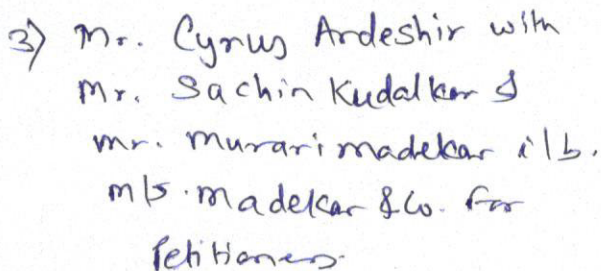 3) Mr. Cyrus Ardeshir with
Mr. Sachin Kudalkar &
mr. murari madekar i/b.
m/s. madekar & Co. For
Petitioners.